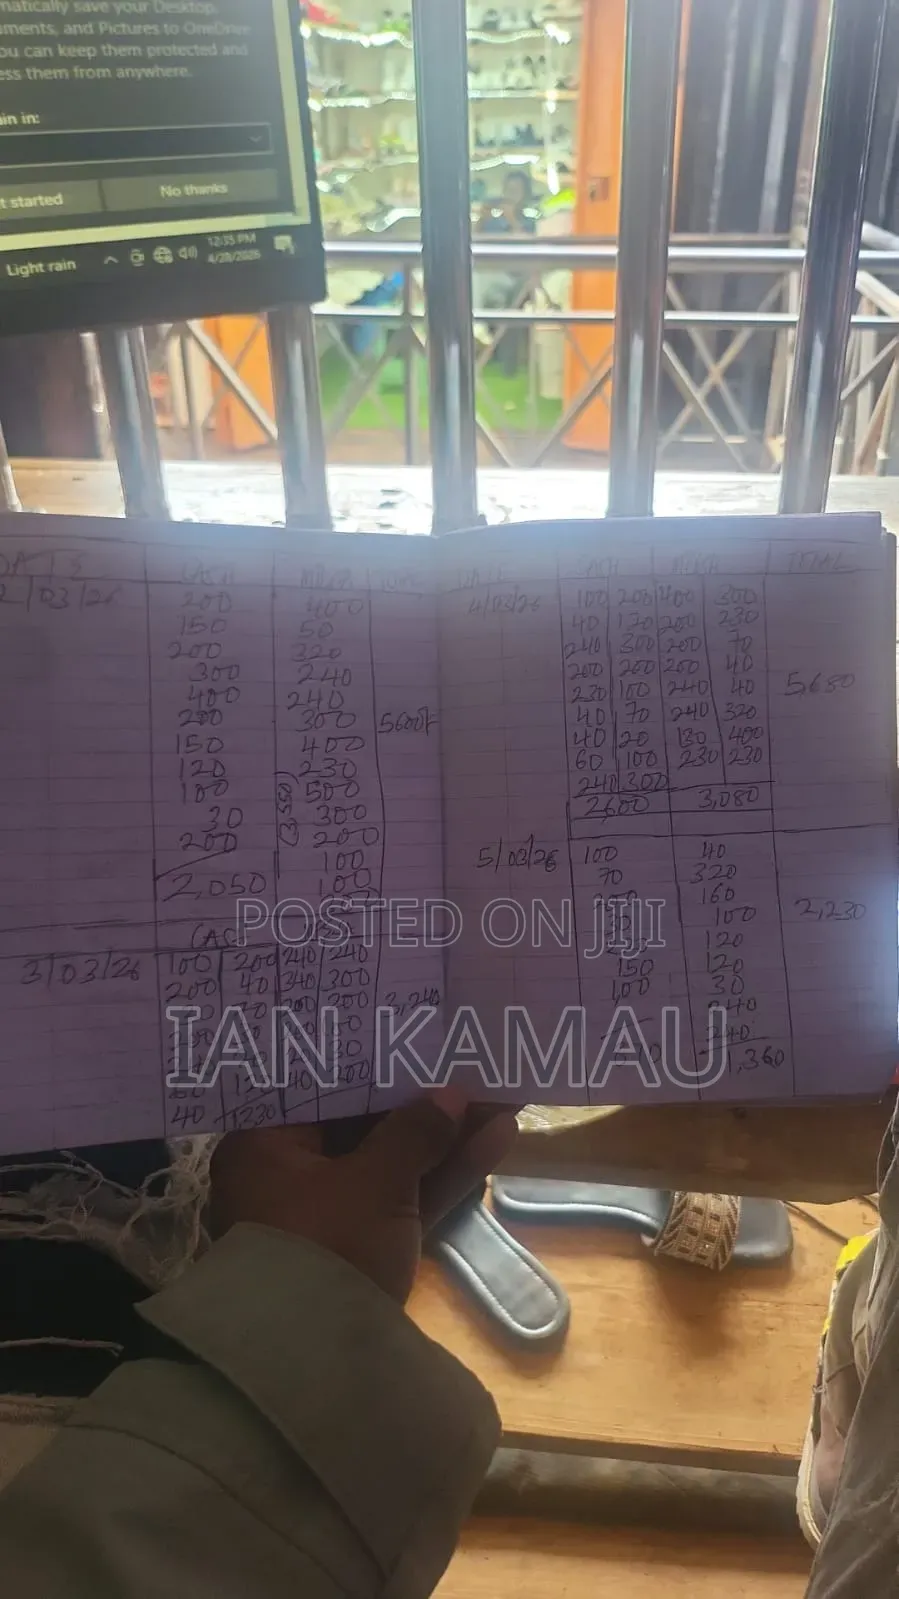 matically save your Desktop,
uments, and Pictures to OneDrive
ou can keep them protected and
ess them from anywhere.
in in:
t started No thanks
Light rain 12:35 PM
4/28/2026
CASH
2/03/26 200 400
150 50
200 320
300 240
400 240
200 300 5600/=
150 400
120 230
100 500
30 300
200 200
100
2,050 100
(3,550)
3/03/26 100 200 240 240
200 40 340 300
200 200 3,240
40 1,230
DATE CASH TOTAL
4/03/26 100 200 400 300
40 170 200 230
240 300 200 70
200 200 200 40
230 100 240 40 5,680
40 70 240 320
40 20 130 400
60 100 230 230
240 300
2,600 3,080
5/03/26 100 40
70 320
160
100 2,230
120
150 120
100 30
240
240
1,360
POSTED ON JIJI
IAN KAMAU